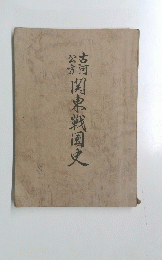 古河
公方
関東戦国史